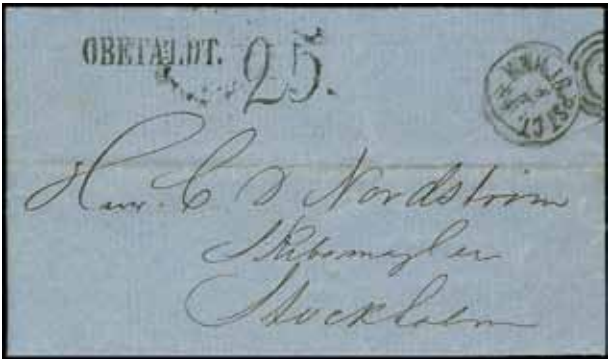 OBETALDT. 25.
Herr. C D Nordström
Skibsmægler
Stockholm